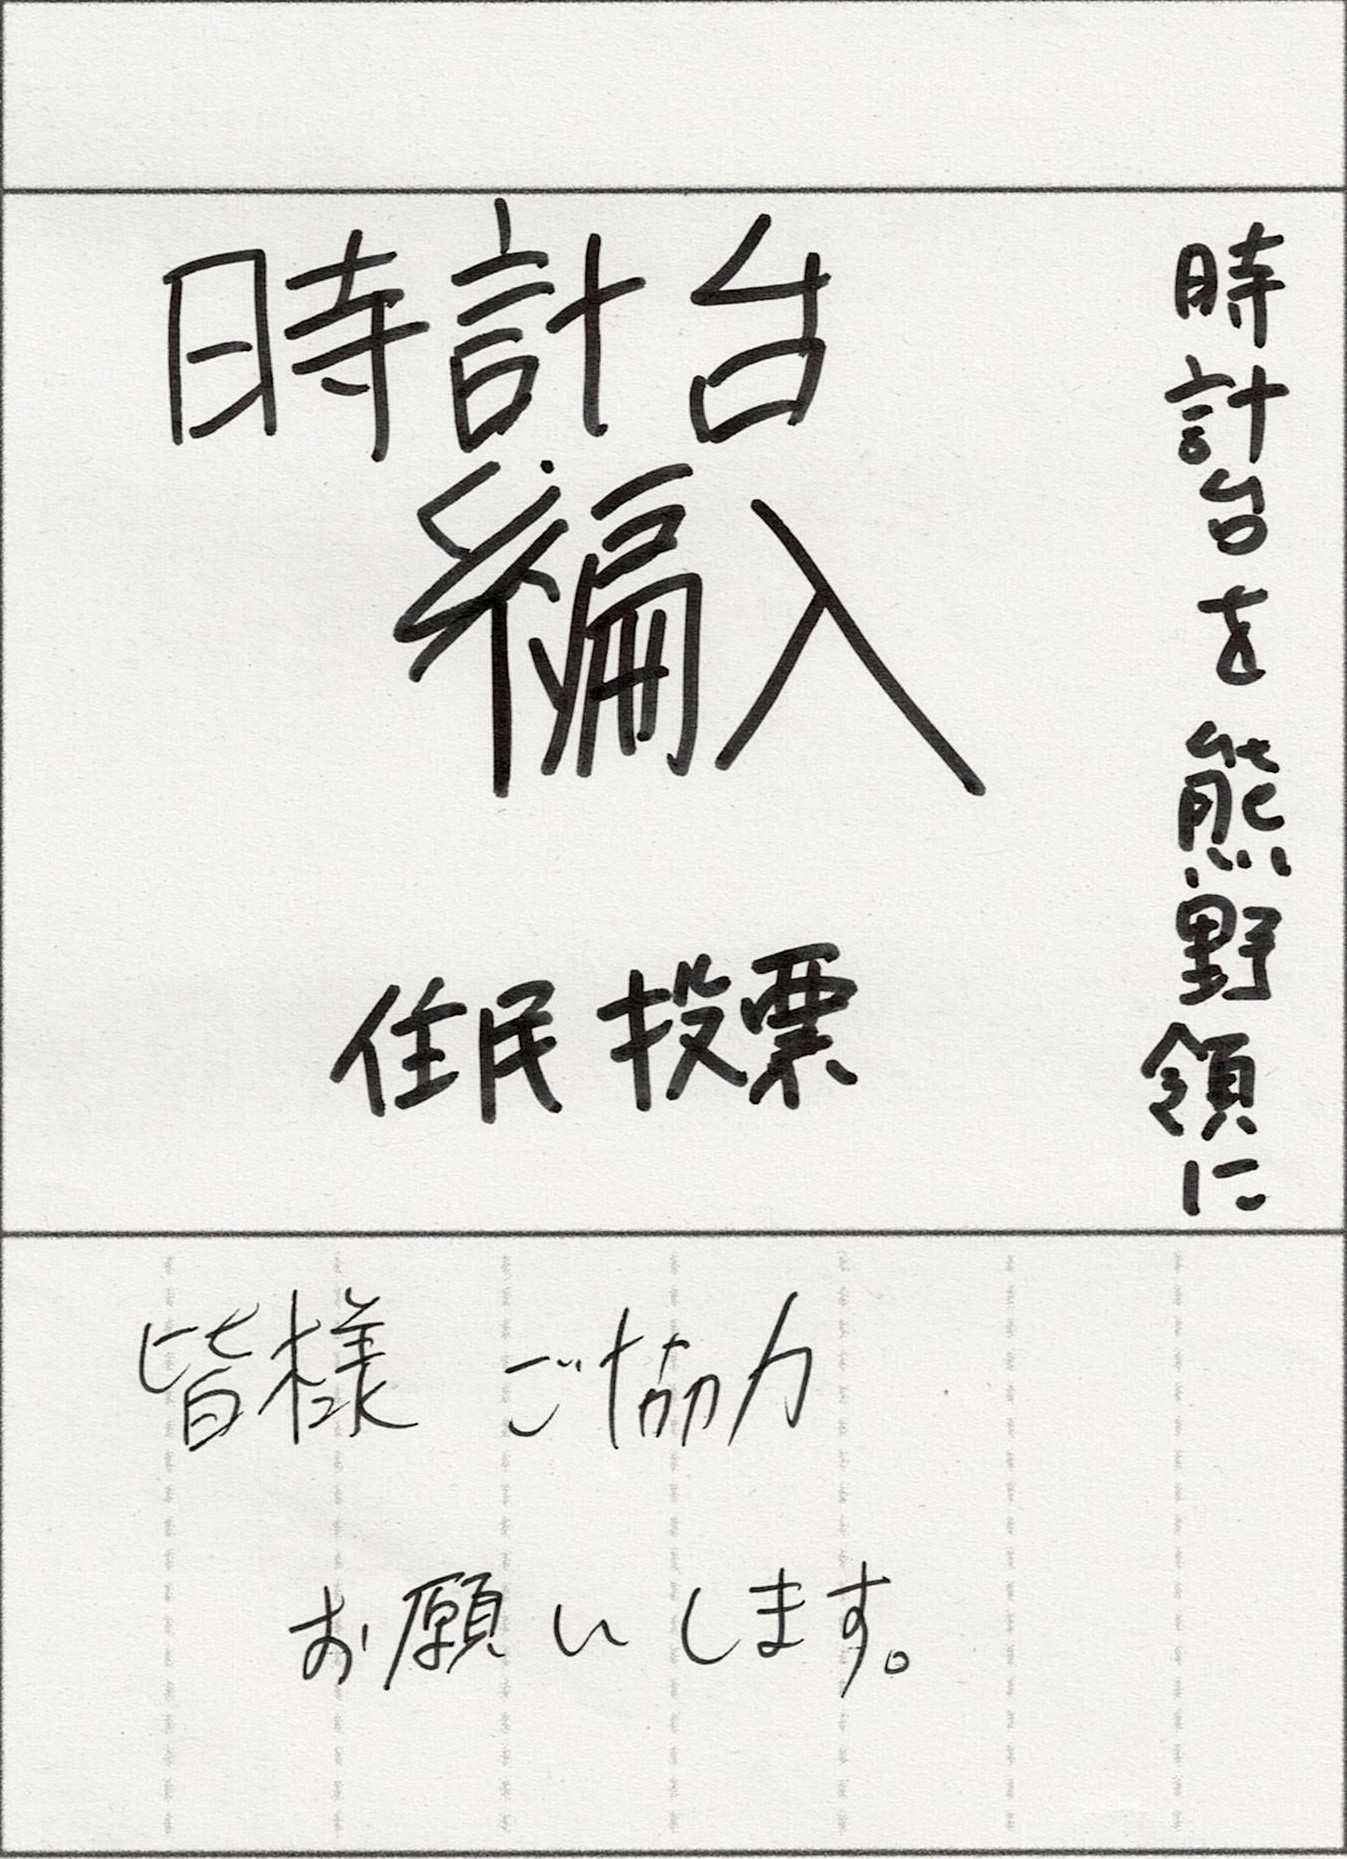 時計台を熊野領に
時計台
編入
住民投票
皆様 ご協力
お願いします。